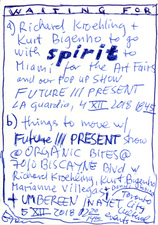 WAITING FOR
a) Richard Kroehling +
Kurt Bigenho to go
with spirit to
Miami for the Art Fairs
and our POP UP SHOW
FUTURE /// PRESENT
LA Guardia, 4 XII 2018
b) things to move w/
Future /// PRESENT Show
@ ORGANIC BITES @
7010 BISCAYNE Blvd w
Richard Kroehling, Kurt Bigenho
Marianne Villegas
+ UMBEREEN INAYET
5 XII 2018
cultural
events